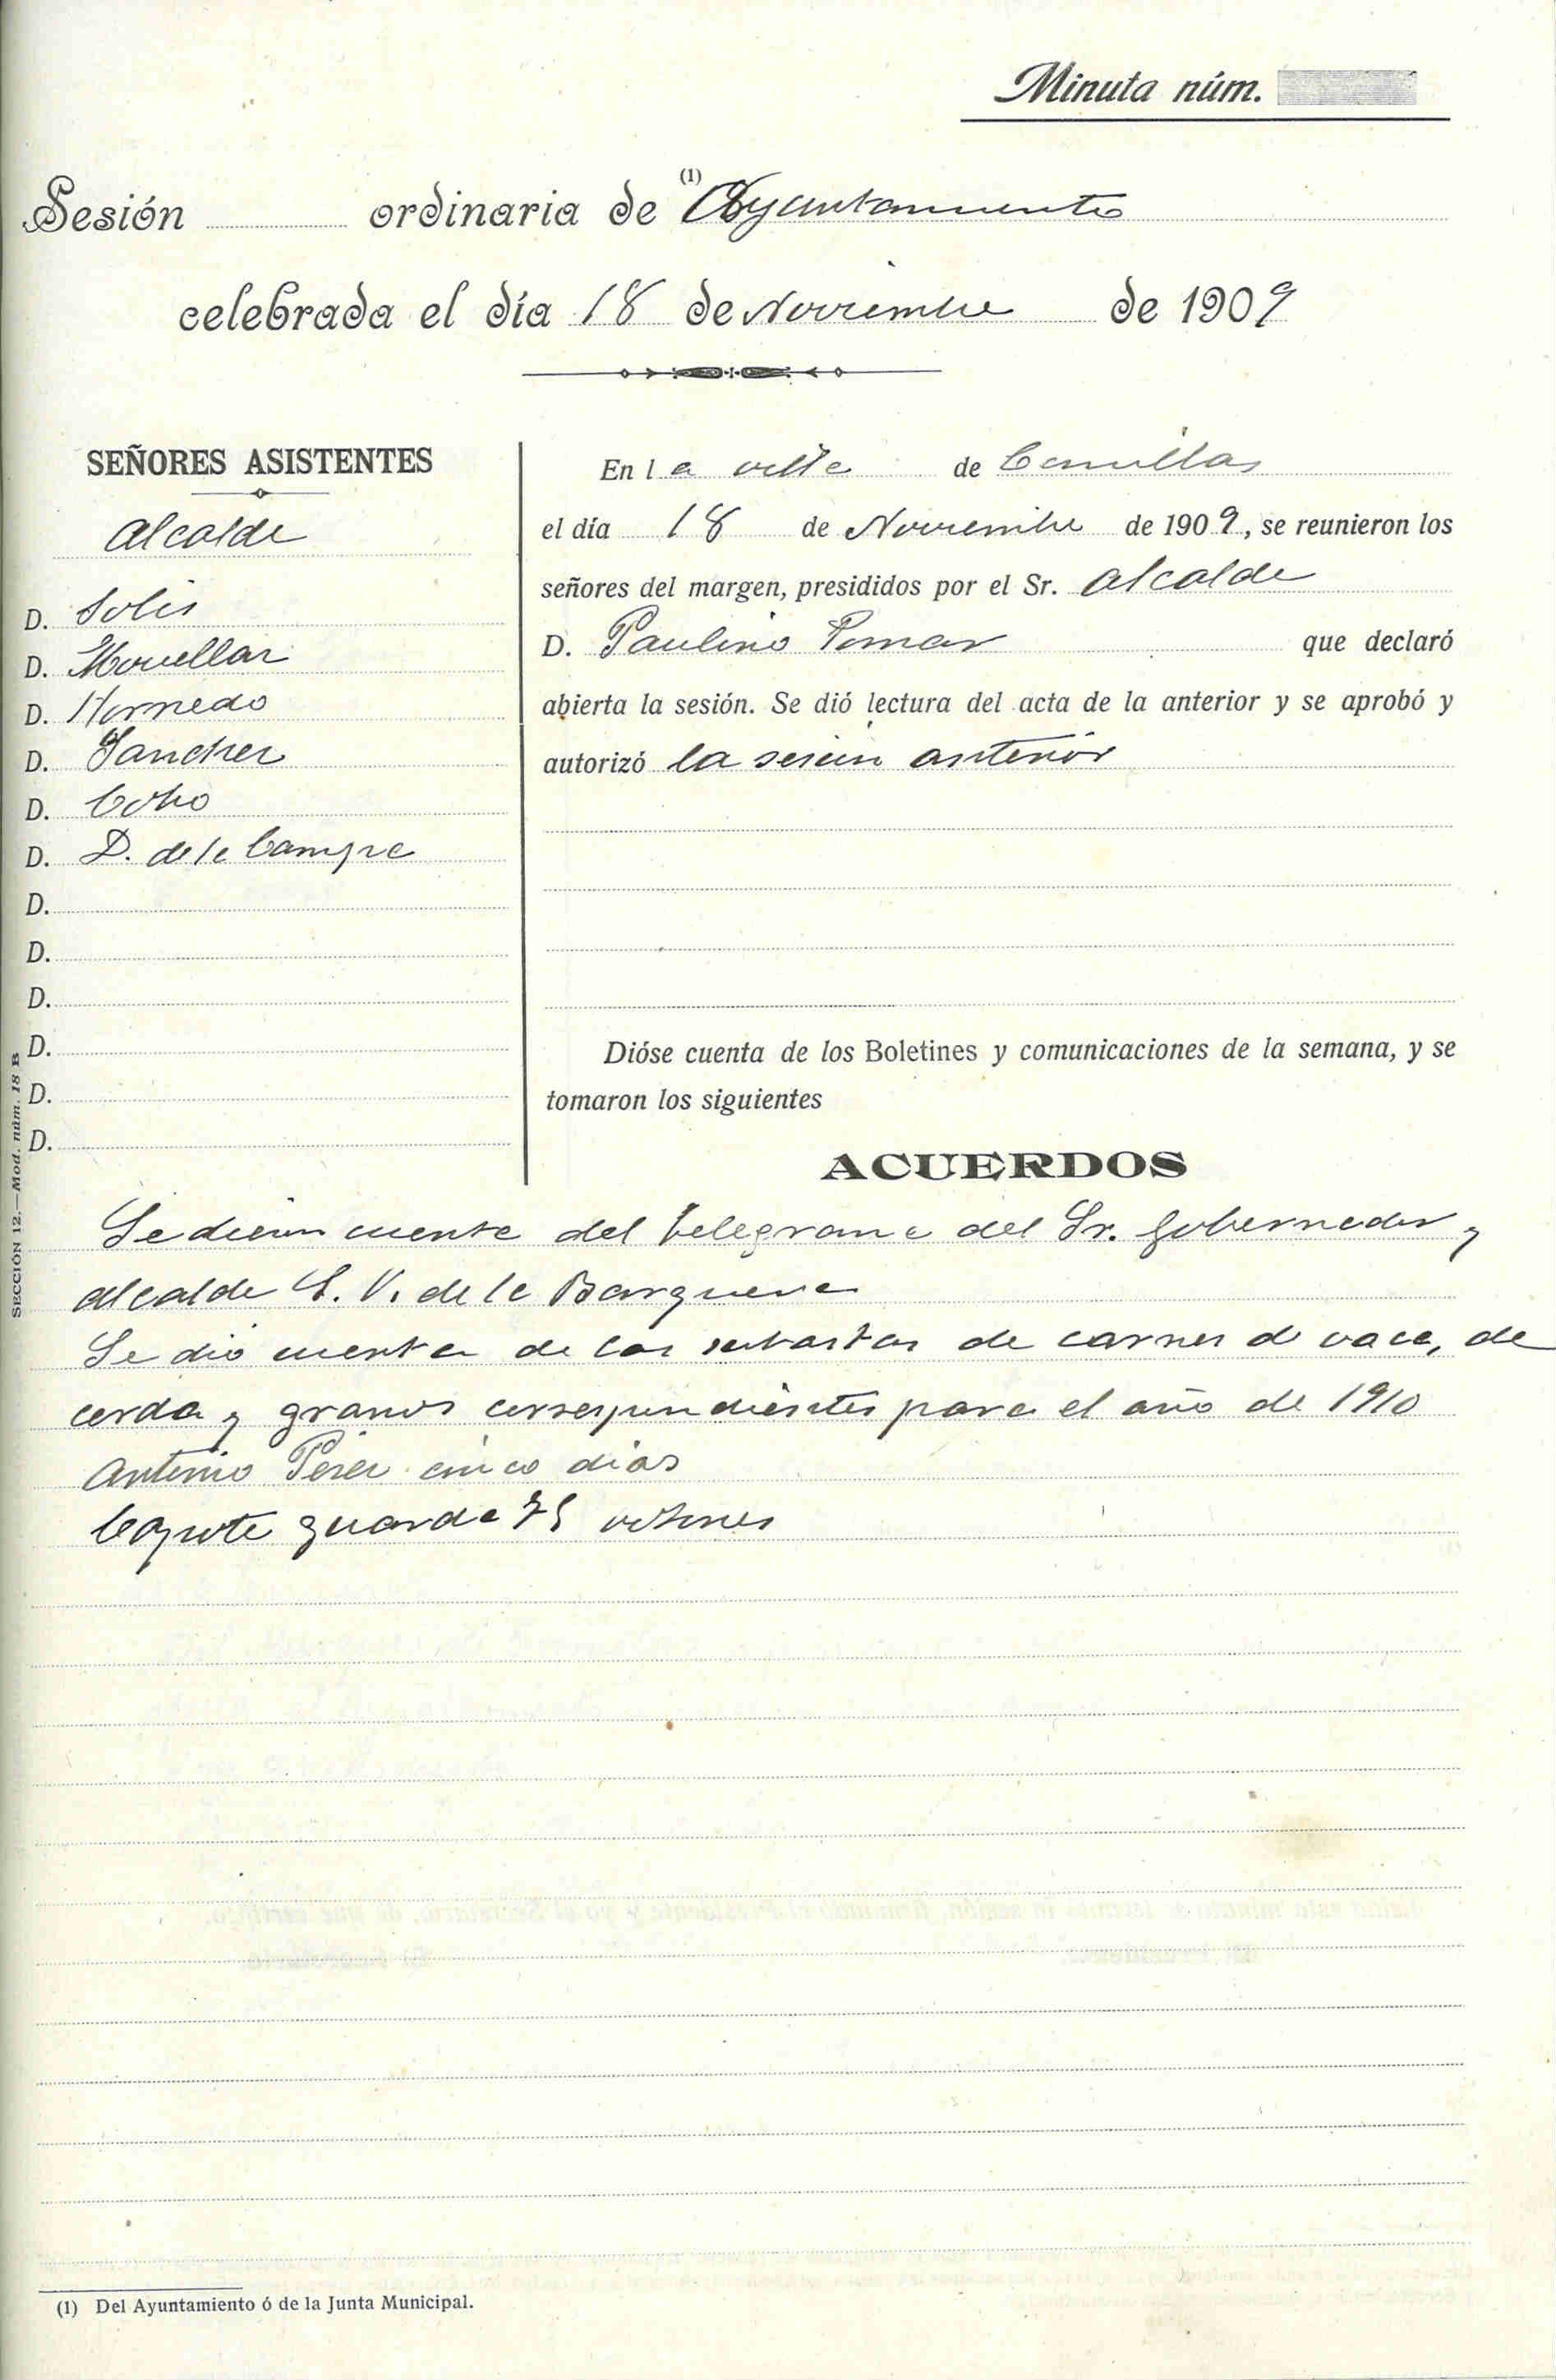 Minuta núm.
Sesión ordinaria de (1) Ayuntamiento
celebrada el día 18 de Noviembre de 1909
SEÑORES ASISTENTES
Alcalde
D. Solis
D. Movellan
D. Hornedo
D. Sanchez
D. Cobo
D. D. de la Campa
D.
D.
D.
D.
D.
D.
SECCIÓN 12.—Mod. núm. 18 B
En la villa de Comillas
el día 18 de Noviembre de 1909, se reunieron los
señores del margen, presididos por el Sr. Alcalde
D. Paulino que declaró
abierta la sesión. Se dió lectura del acta de la anterior y se aprobó y
autorizó la sesion anterior
Dióse cuenta de los Boletines y comunicaciones de la semana, y se
tomaron los siguientes
ACUERDOS
Se dieron cuenta del telegrama del Sr. Gobernador y
alcalde S. V. de la Barquera
Se dió cuenta de las subastas de carnes de vaca, de
cerda y granos correspondientes para el año de 1910
Antonio Perez cinco dias
Capote guarda 75
(1) Del Ayuntamiento ó de la Junta Municipal.